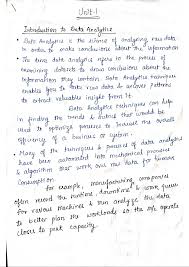 Unit-1
Introduction to Data Analytics
• Data Analytics is the science of analyzing raw data
in order to make conclusions about the information
• The term data analytics refers to the process of
examining datasets to draw conclusions about the
information they contain. Data Analytic techniques
enables you to take raw data & uncover patterns
to extract valuable insight from it
• Data Analytics techniques can help
in finding the trends & metrics that would be
used to optimize processes to increase the overall
efficiency of a business or system.
• Many of the techniques & process of data analytics
have been automated into mechanical process
& algorithm that work over raw data for human
consumption
for example, manufacturing companies
often record the runtime, downtime & work queue
for various machines & then analyze the data
to better plan the workloads so the m/c operate
closer to peak capacity.